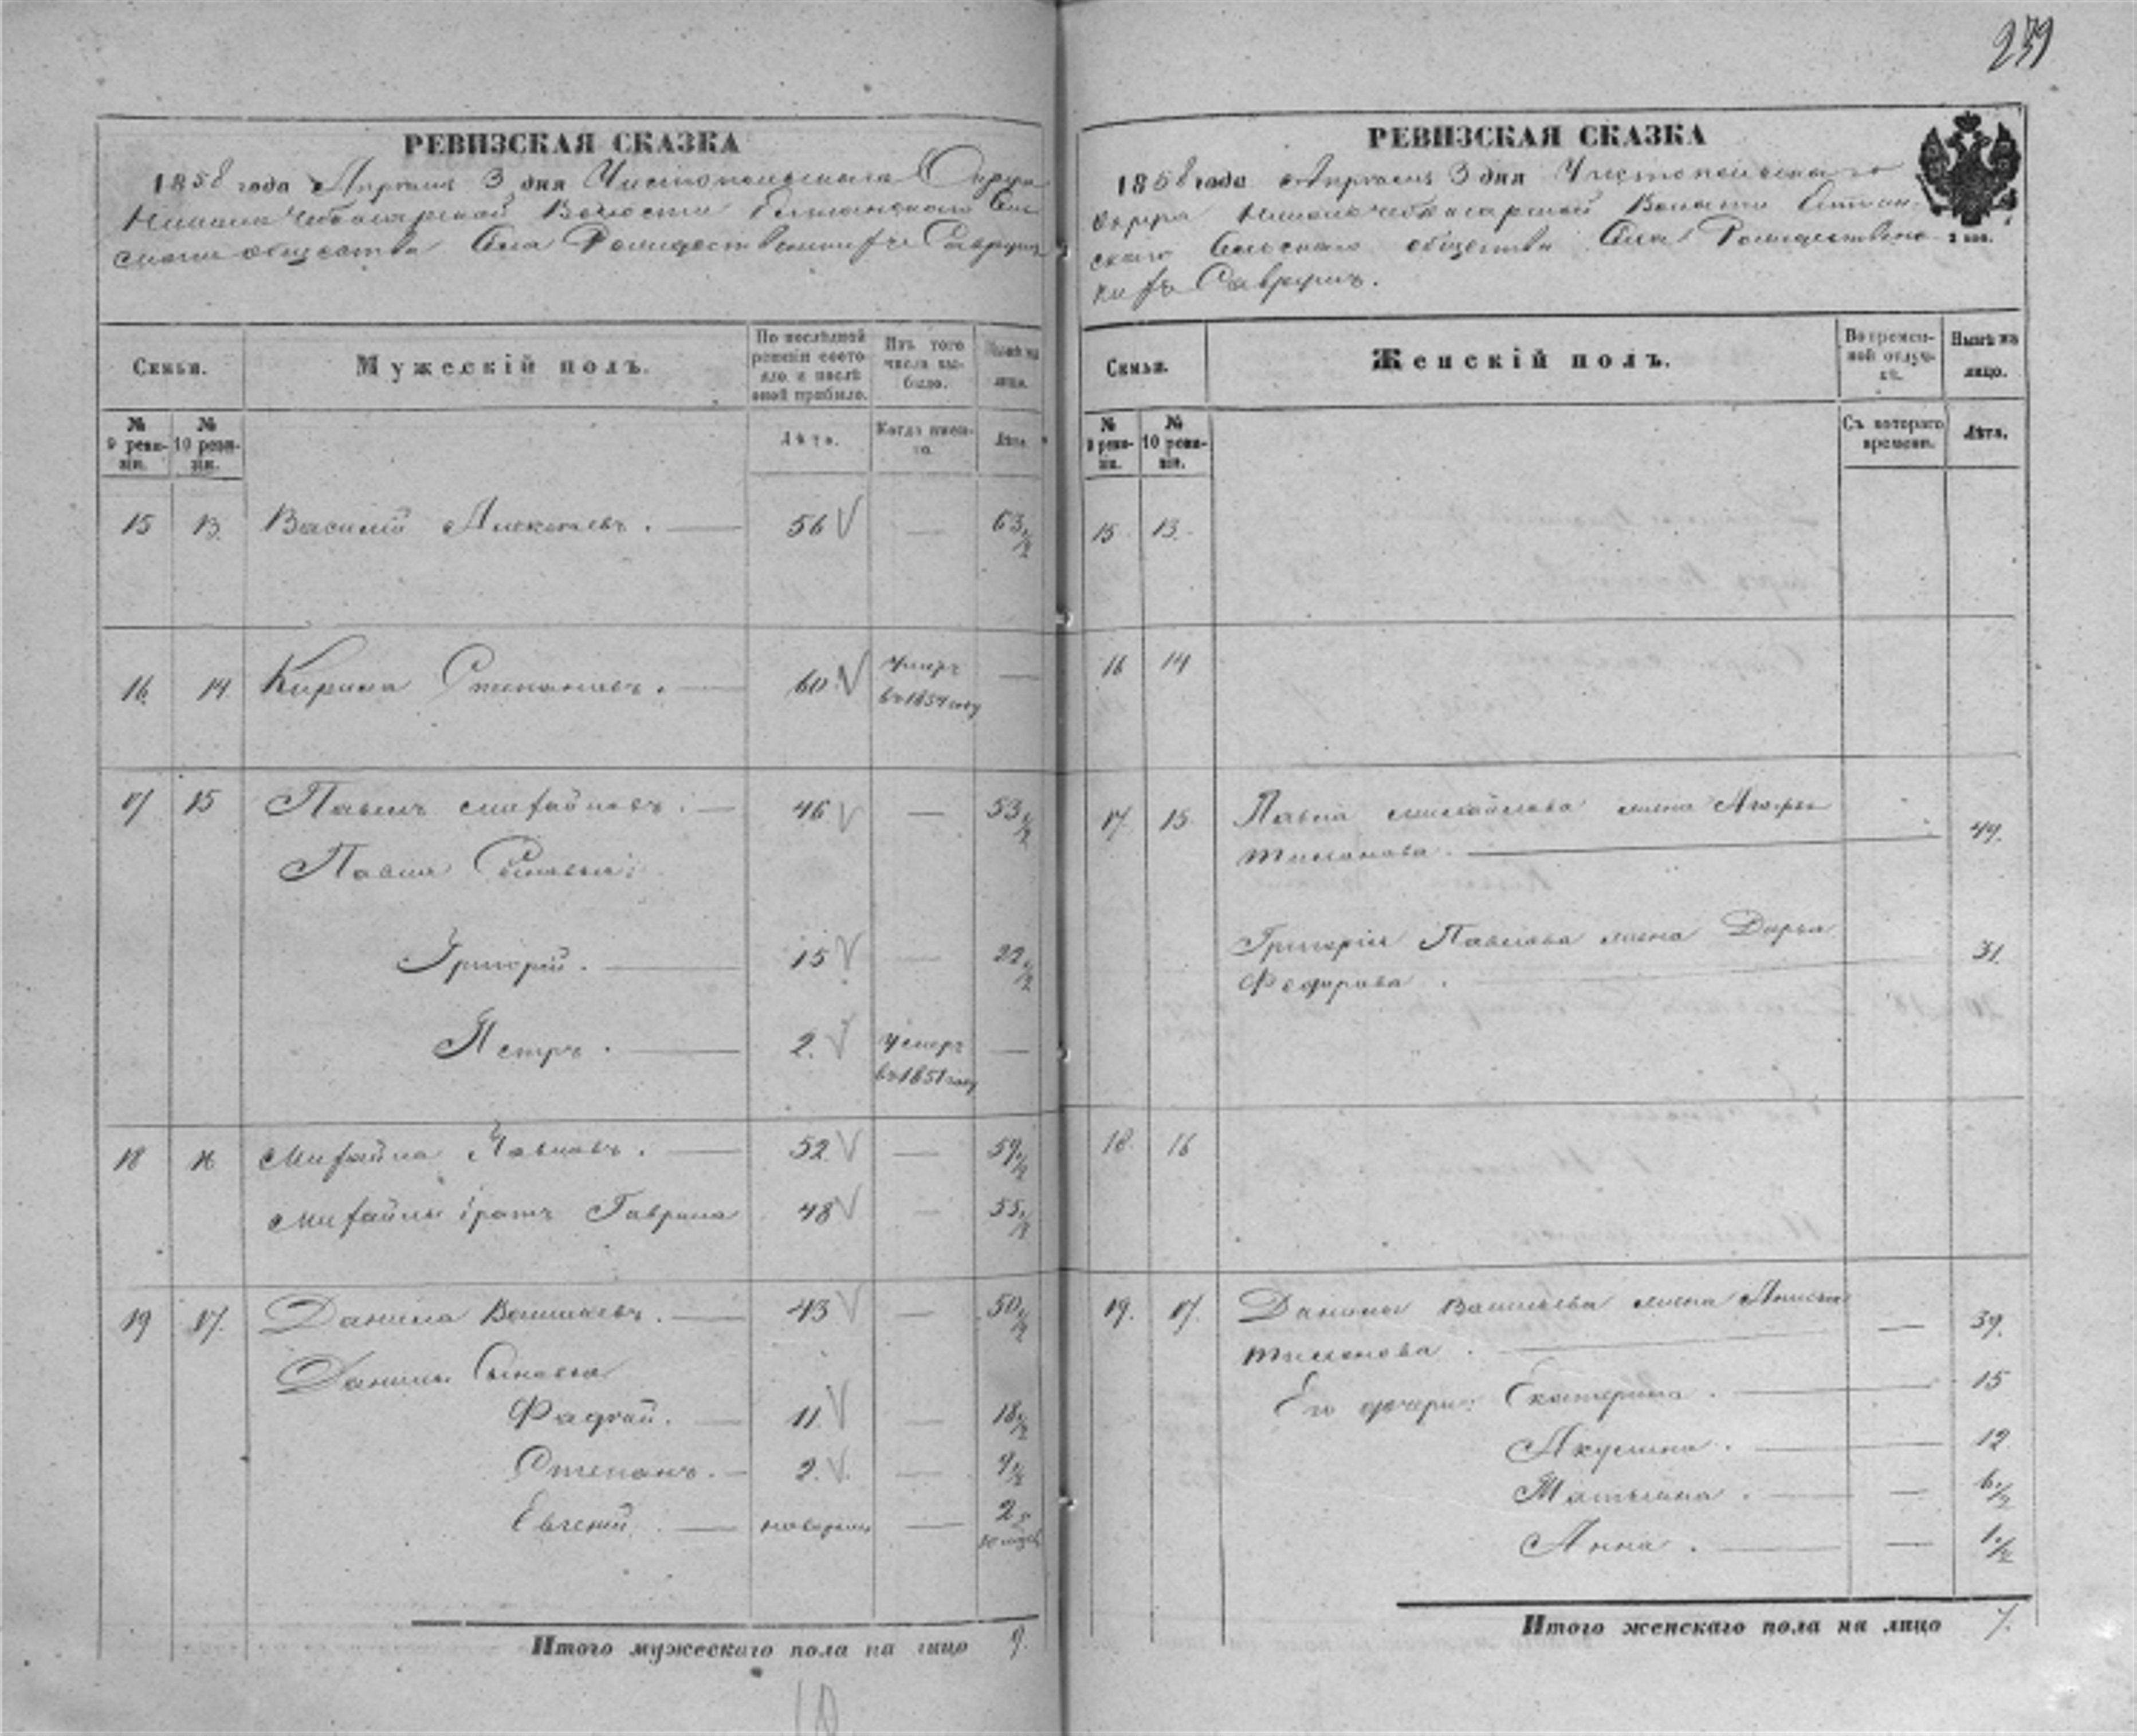 239
РЕВИЗСКАЯ СКАЗКА
1858 года Апреля 3 дня Чистопольскаго Округа
Волости
общества Села Рождественских Саврушъ
Семьи.
Мужескій полъ.
По последней ревизіи состояло и после оной прибыло.
Изъ того числа выбыло.
Ныне на лицо.
№ 9 ревизіи.
№ 10 ревизіи.
Лета.
Когда именно.
Лета.
15 13. Василій Алексеевъ. 56 — 63 1/2
16. 14. Кирила Степановъ. 60. умеръ в 1854 году —
17 15 Павелъ Михайловъ. 46 — 53 1/2
Павла Сыновья:
Григорій. 15 — 22 1/2
Петръ. 2. умеръ в 1851 году —
18 16 Михайла Павловъ. 52 — 59 1/2
Михайлы братъ Гаврила 48 — 55 1/2
19 17. Данила Васильевъ. 43 — 50 1/2
Данилы Сыновья
Фадей. 11. — 18 1/2
Степанъ. 2. — 9 1/2
Евгеній. новорожд —
Итого мужескаго пола на лицо 9.
10
РЕВИЗСКАЯ СКАЗКА
1858 года Апреля 3 дня Чистопольскаго
Округа Волости
скаго Сельскаго общества Села Рождественс-
ких Саврушъ.
2 коп.
Семьи.
Женскій полъ.
Во временной отлучке.
Ныне на лицо.
№ 9 ревизіи.
№ 10 ревизіи.
Съ котораго времени.
Лета.
15 13.
16 14
17. 15. Павла Михайлова жена
49.
Григорія Павлова жена Дарья
Федорова. 31.
18. 16
19. 17. Данилы Васильева жена
39.
Его дочери: Екатерина. 15
Акулина. 12
Матрена. — 6 1/2
Анна. — 1 1/2
Итого женскаго пола на лицо 7.